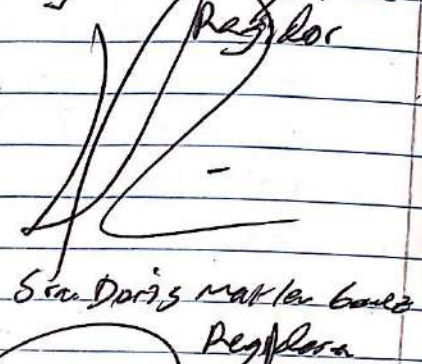 Regidor
Sra. Doris Marlen
Regidora